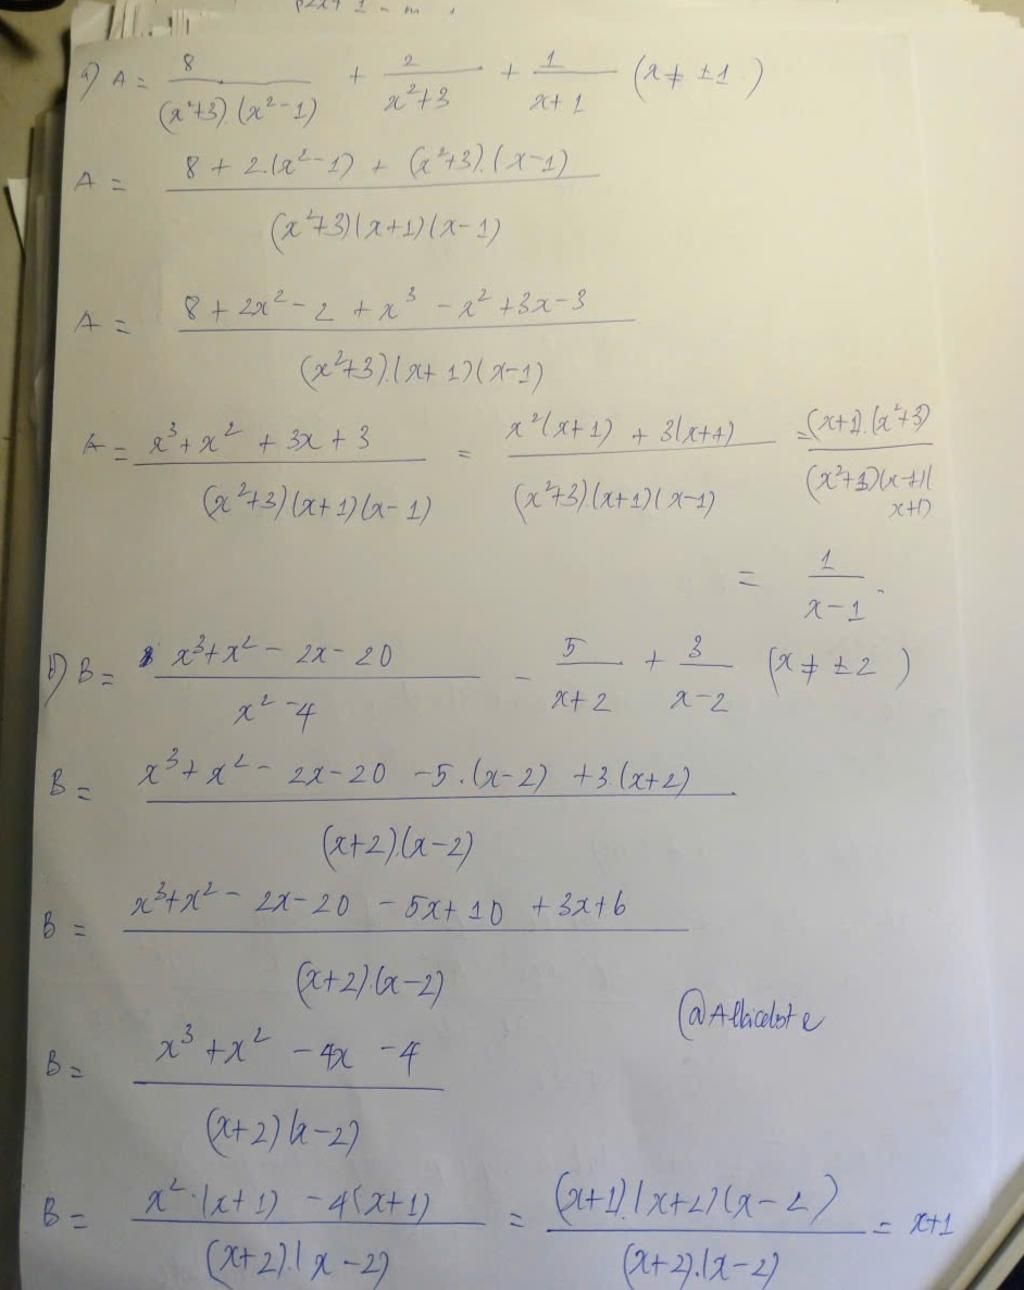 a) A = 8/((x²+3).(x²-1)) + 2/(x²+3) + 1/(x+1) (x ≠ ±1)
A = (8 + 2.(x²-1) + (x²+3).(x-1))/((x²+3)(x+1)(x-1))
A = (8 + 2x² - 2 + x³ - x² + 3x - 3)/((x²+3).(x+1)(x-1))
A = (x³ + x² + 3x + 3)/((x²+3)(x+1)(x-1)) = (x²(x+1) + 3(x+1))/((x²+3).(x+1)(x-1)) = (x+1).(x²+3)
= 1/(x-1).
b) B = (x³+x² - 2x - 20)/(x² - 4) - 5/(x+2) + 3/(x-2) (x ≠ ±2)
B = (x³+x² - 2x - 20 - 5.(x-2) + 3.(x+2))/((x+2).(x-2))
B = (x³+x² - 2x - 20 - 5x + 10 + 3x + 6)/((x+2).(x-2))
@Albiceleste
B = (x³ + x² - 4x - 4)/((x+2)(x-2))
B = (x².(x+1) - 4(x+1))/((x+2).(x-2)) = ((x+1).(x+2)(x-2))/((x+2).(x-2)) = x+1